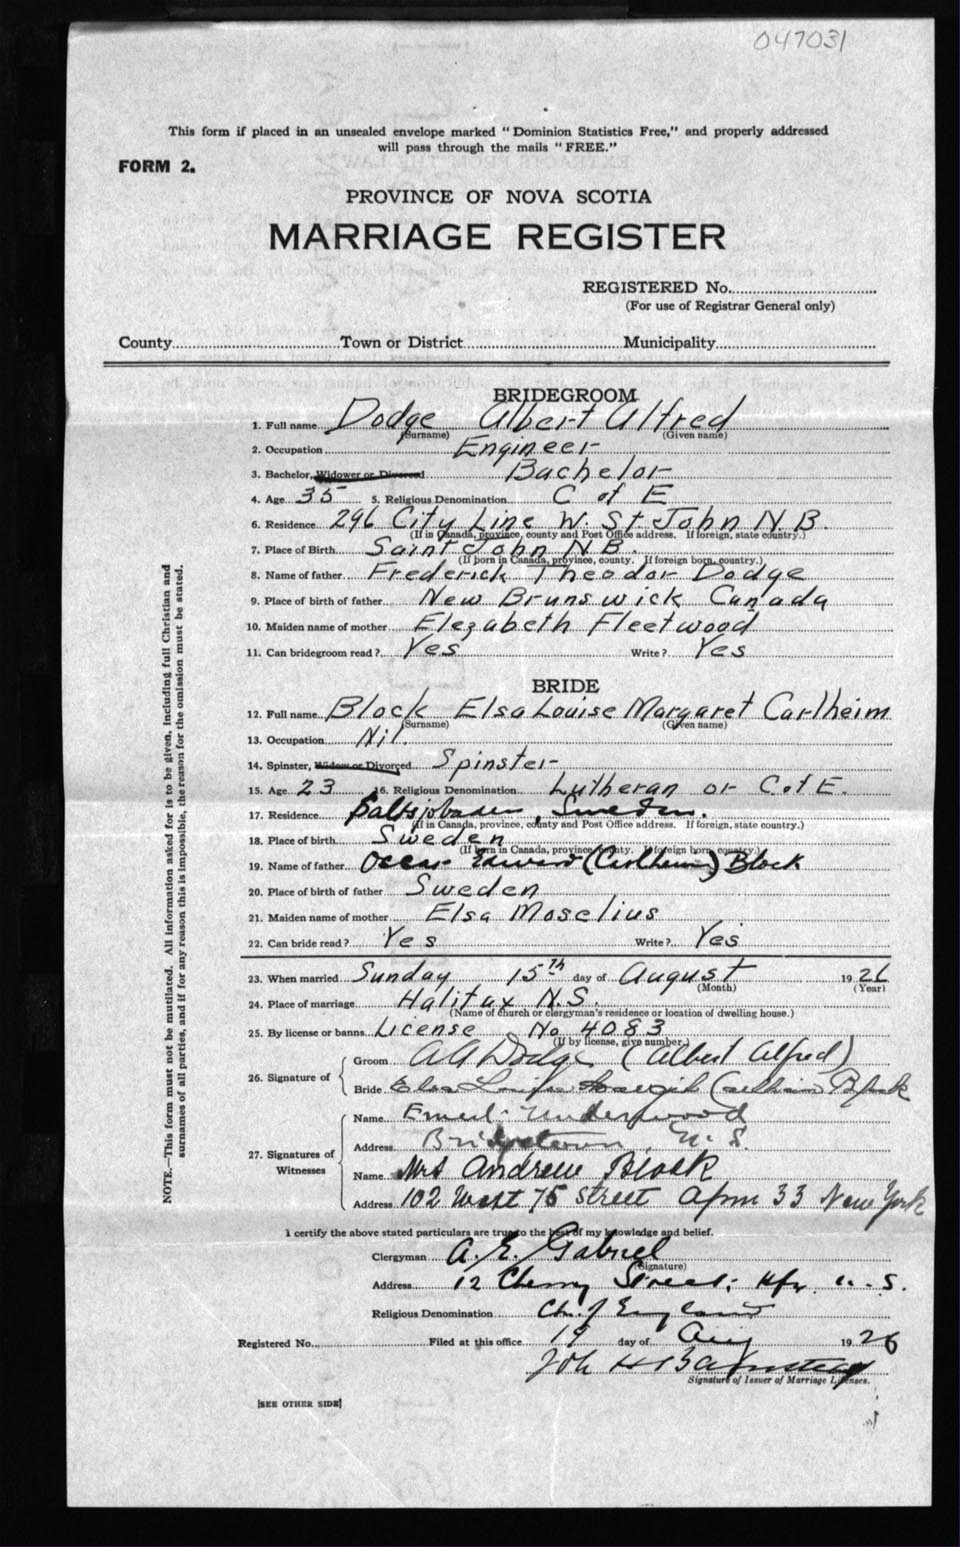 047031
This form if placed in an unsealed envelope marked "Dominion Statistics Free," and properly addressed
will pass through the mails "FREE."
FORM 2.
PROVINCE OF NOVA SCOTIA
MARRIAGE REGISTER
REGISTERED No.
(For use of Registrar General only)
County Town or District Municipality
BRIDEGROOM
1. Full name Dodge Albert Alfred
(Surname) (Given name)
2. Occupation Engineer
3. Bachelor, Widower or Divorced Bachelor
4. Age 35 5. Religious Denomination C of E
6. Residence 296 City Line W. St John N.B.
(If in Canada, province, county and Post Office address. If foreign, state country.)
7. Place of Birth Saint John N.B.
(If born in Canada, province, county. If foreign born, country.)
8. Name of father Frederick Theodor Dodge
9. Place of birth of father New Brunswick Canada
10. Maiden name of mother Elezabeth Fleetwood
11. Can bridegroom read? Yes Write? Yes
BRIDE
12. Full name Block Elsa Louise Margaret Carlheim
(Surname) (Given name)
13. Occupation Nil.
14. Spinster, Widow or Divorced Spinster
15. Age 23 16. Religious Denomination Lutheran or C of E.
17. Residence Saltsjobaden, Sweden.
(If in Canada, province, county and Post Office address. If foreign, state country.)
18. Place of birth Sweden
(If born in Canada, province, county. If foreign born, country.)
19. Name of father Oscar Edward (Carlheim) Block
20. Place of birth of father Sweden
21. Maiden name of mother Elsa Moselius
22. Can bride read? Yes Write? Yes
23. When married Sunday 15th day of August 1926
(Month) (Year)
24. Place of marriage Halifax N.S.
(Name of church or clergyman's residence or location of dwelling house.)
25. By license or banns License No 4083
(If by license, give number.)
26. Signature of
Groom AA Dodge (Albert Alfred)
Bride Elsa Louise Carlheim Block
27. Signatures of Witnesses
Name Underwood
Address Bridgetown N.S.
Name Mrs Andrew Block
Address 102 West 75 Street Apm 33 New York
I certify the above stated particulars are true to the best of my knowledge and belief.
Clergyman A. E. Gabriel
(Signature)
Address 12 Cherry Street, Hfx N.S.
Religious Denomination Ch. of England
Registered No. Filed at this office 19 day of Aug 1926
Signature of Issuer of Marriage Licenses.
[SEE OTHER SIDE]
NOTE.—This form must not be mutilated. All information asked for is to be given, including full Christian and
surnames of all parties, and if for any reason this is impossible, the reason for the omission must be stated.